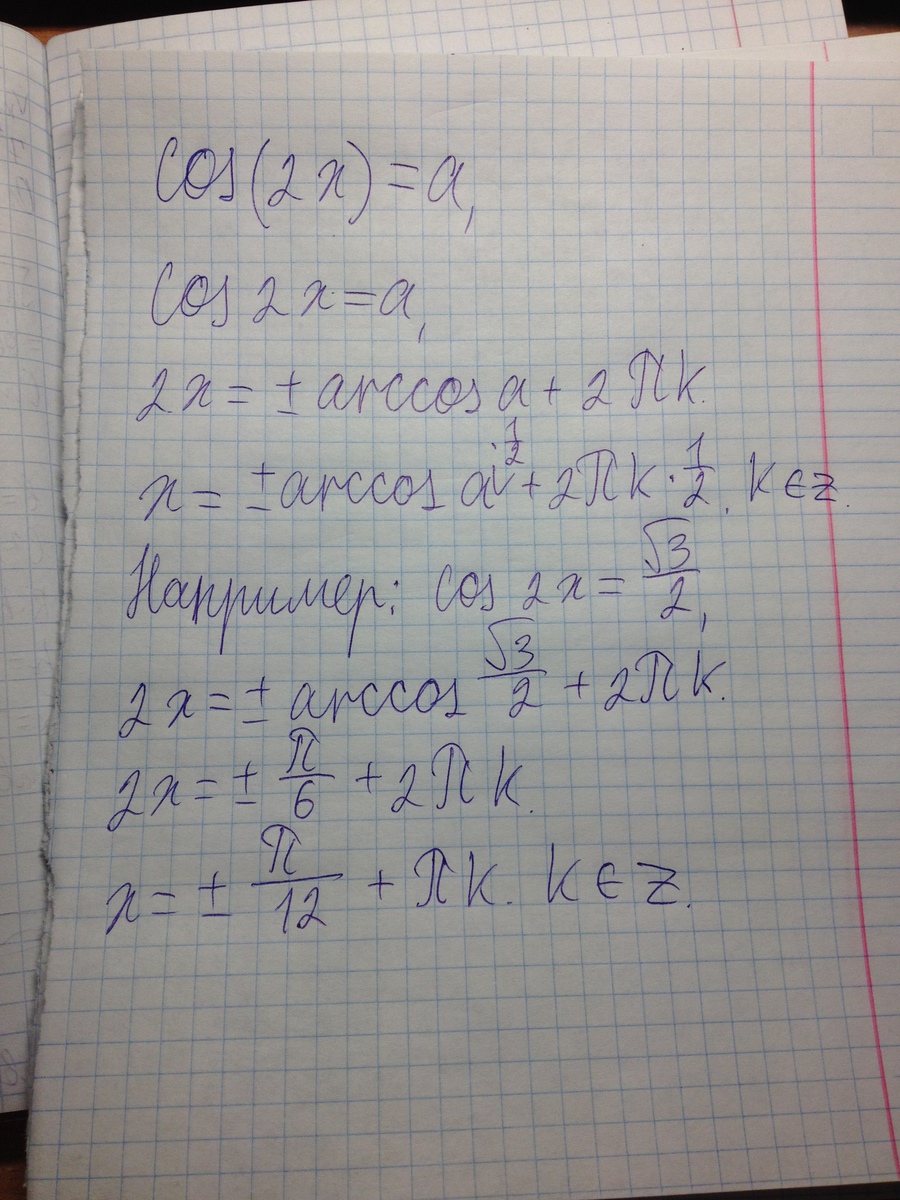 cos(2x)=a,
cos 2x=a,
2x=±arccos a+2πk.
x=±arccos a·1/2+2πk·1/2, k∈z.
Например: cos 2x=√3/2,
2x=±arccos √3/2+2πk.
2x=±π/6+2πk.
x=±π/12+πk. k∈z.